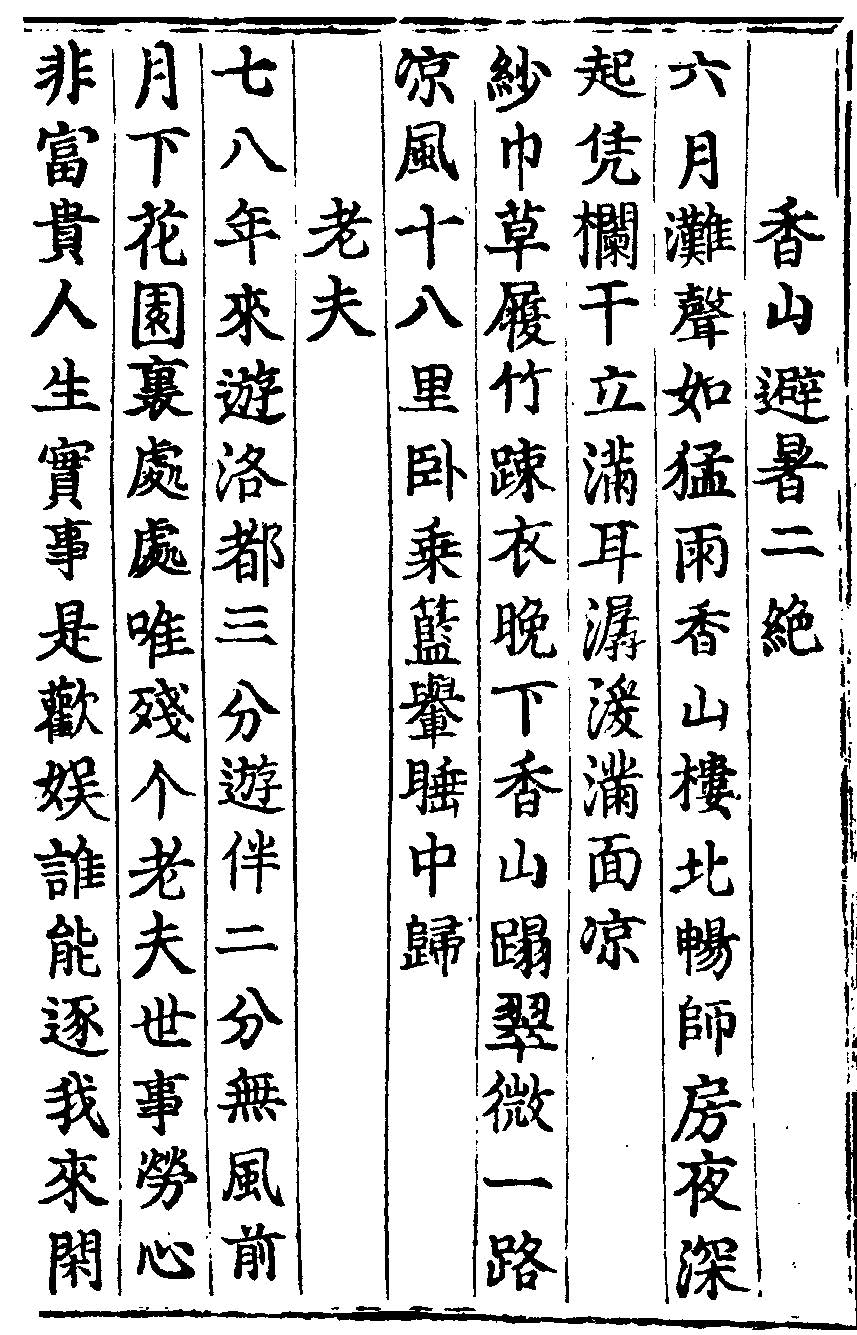 香山避暑二絶
六月灘聲如猛雨香山樓北暢師房夜深
起凭欄干立滿耳潺湲滿面凉
紗巾草履竹踈衣晚下香山蹋翠微一路
凉風十八里卧乗藍轝睡中歸
老夫
七八年來遊洛都三分遊伴二分無風前
月下花園裏處處唯殘个老夫世事勞心
非富貴人生實事是歡娱誰能逐我來閑